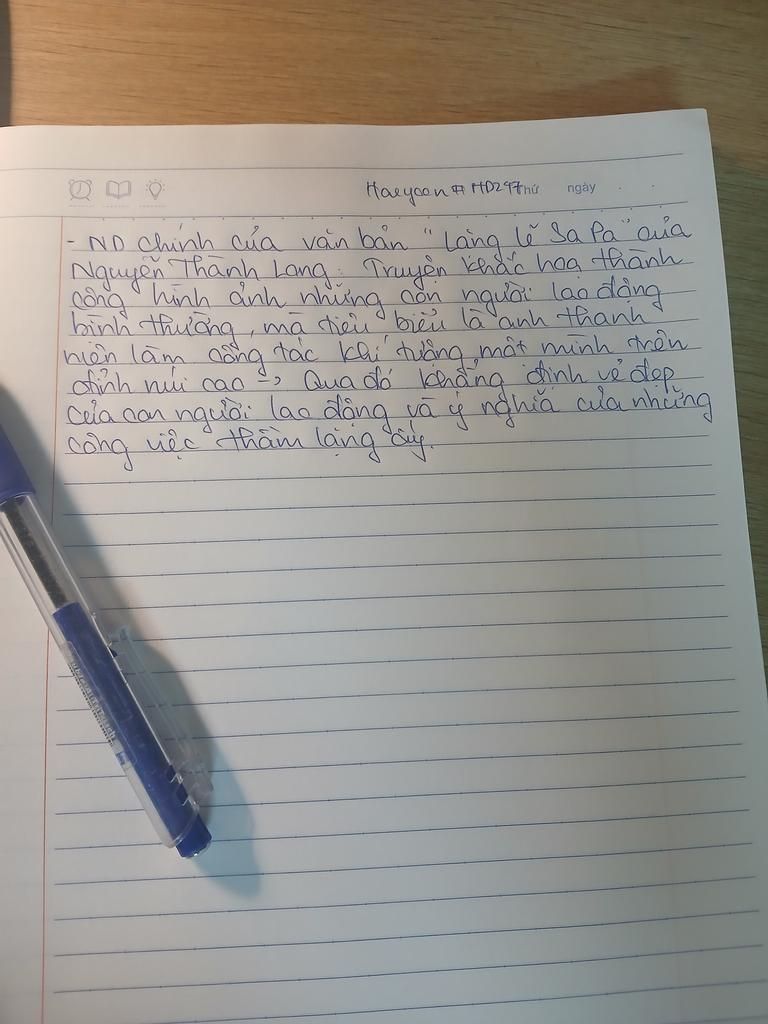 Haeyoon # HD297 Thứ ngày
- ND chính của văn bản "Lặng lẽ Sa Pa" của
Nguyễn Thành Long: Truyện khắc hoạ thành
công hình ảnh những con người lao động
bình thường, mà tiêu biểu là anh thanh
niên làm công tác khí tượng một mình trên
đỉnh núi cao -> Qua đó khẳng định vẻ đẹp
của con người lao động và ý nghĩa của những
công việc thầm lặng ấy.